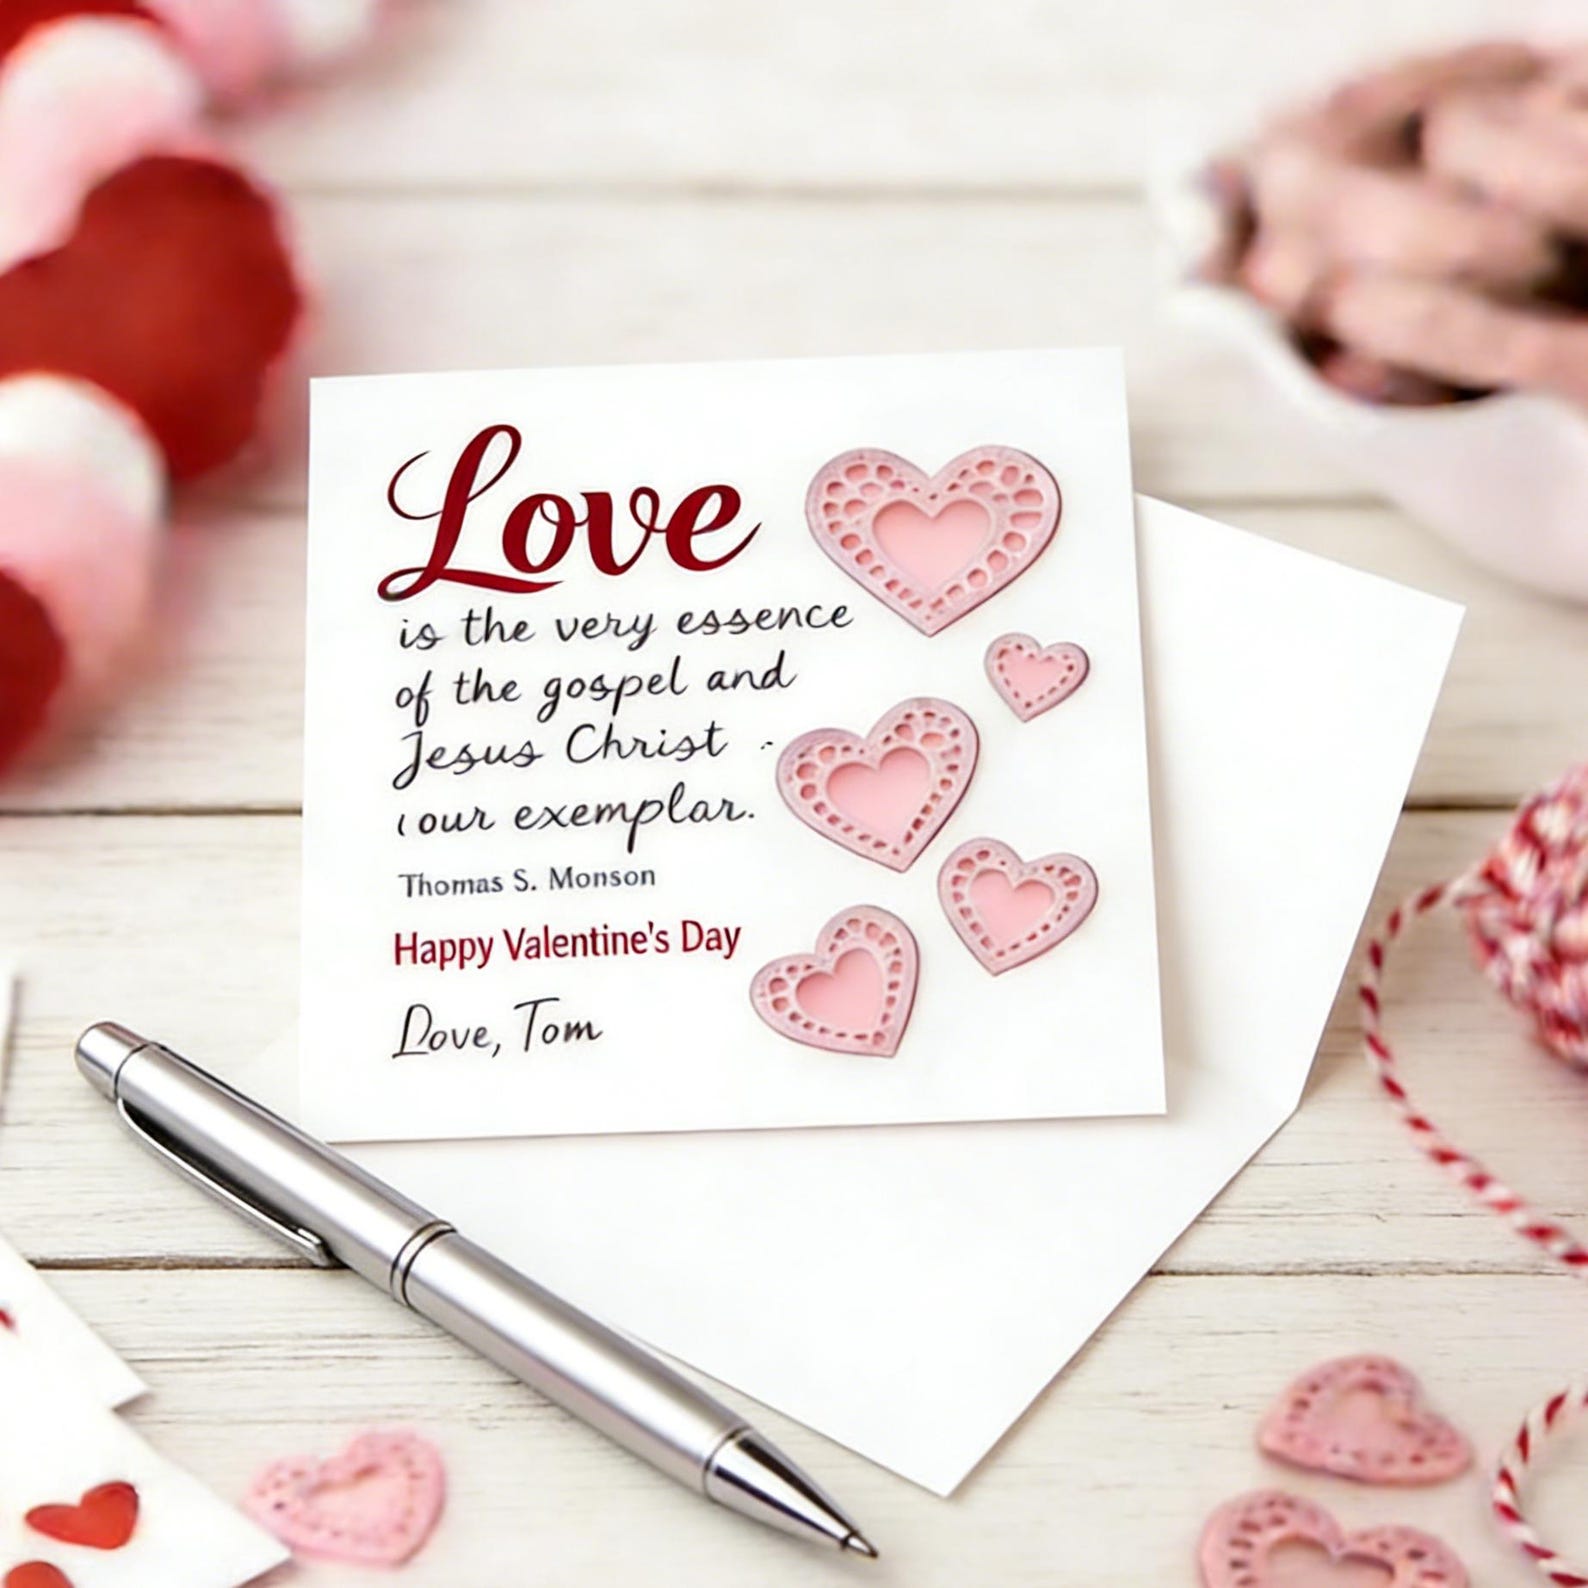 Love
is the very essence
of the gospel and
Jesus Christ
our exemplar.
Thomas S. Monson
Happy Valentine's Day
Love, Tom